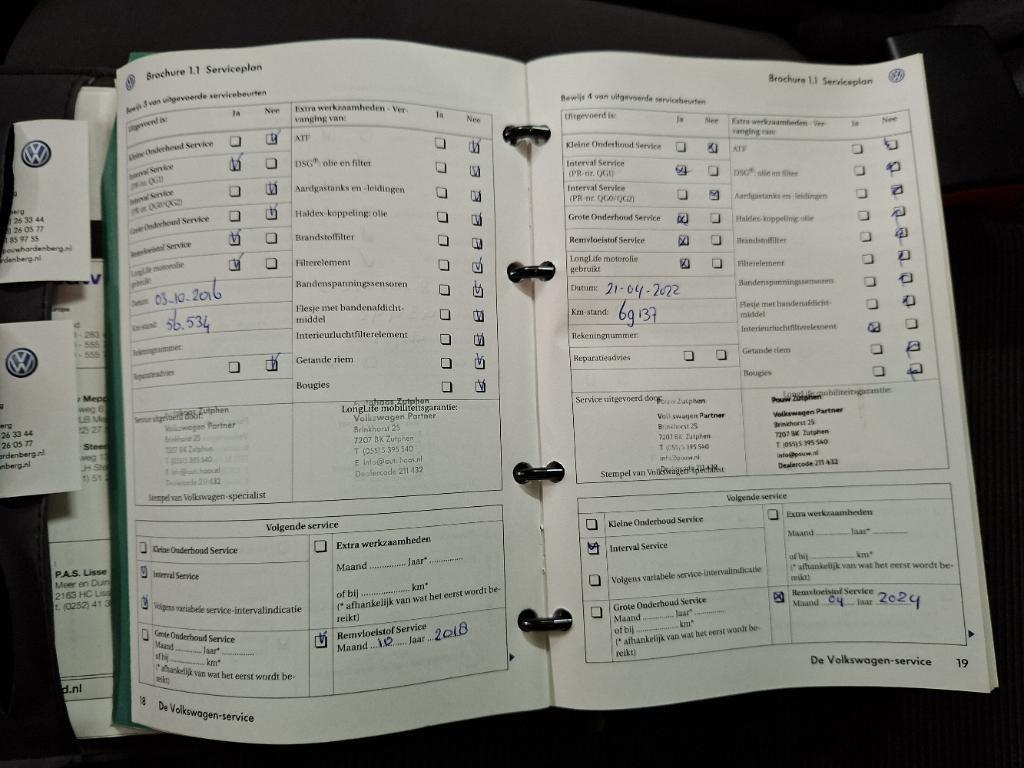 Brochure 1.1 Serviceplan
Bewijs 3 van uitgevoerde servicebeurten
Uitgevoerd is:
Ja
Nee
Kleine Onderhoud Service
Interval Service
(PR-nr. QG1)
Interval Service
(PR-nr. QG0/QG2)
Grote Onderhoud Service
Remvloeistof Service
LongLife motorolie
gebruikt:
Datum: 03-10-2016
Km-stand: 56.534
Rekeningnummer:
Reparatieadvies
Extra werkzaamheden - Ver-
vanging van:
Ja
Nee
ATF
DSG®: olie en filter
Aardgastanks en -leidingen
Haldex-koppeling: olie
Brandstoffilter
Filterelement
Bandenspanningssensoren
Flesje met bandenafdicht-
middel
Interieurluchtfilterelement
Getande riem
Bougies
Service uitgevoerd door:
Autohaas Zutphen
Volkswagen Partner
Brinkhorst 25
7207 BK Zutphen
Stempel van Volkswagen-specialist
LongLife mobiliteitsgarantie:
Autohaas Zutphen
Volkswagen Partner
Brinkhorst 25
7207 BK Zutphen
Dealercode 211 432
Volgende service
Kleine Onderhoud Service
Interval Service
Volgens variabele service-intervalindicatie
Grote Onderhoud Service
Maand .............. Jaar* ..............
of bij ........................ km*
(* afhankelijk van wat het eerst wordt be-
reikt)
Extra werkzaamheden
Maand .............. Jaar* ..............
of bij ........................ km*
(* afhankelijk van wat het eerst wordt be-
reikt)
Remvloeistof Service
Maand ...10... Jaar ...2018
18
De Volkswagen-service
Brochure 1.1 Serviceplan
Bewijs 4 van uitgevoerde servicebeurten
Uitgevoerd is:
Ja
Nee
Kleine Onderhoud Service
Interval Service
(PR-nr. QG1)
Interval Service
(PR-nr. QG0/QG2)
Grote Onderhoud Service
Remvloeistof Service
LongLife motorolie
gebruikt
Datum: 21-04-2022
Km-stand: 69137
Rekeningnummer:
Reparatieadvies
Extra werkzaamheden - Ver-
vanging van:
Ja
Nee
ATF
DSG®: olie en filter
Aardgastanks en -leidingen
Haldex-koppeling: olie
Brandstoffilter
Filterelement
Bandenspanningssensoren
Flesje met bandenafdicht-
middel
Interieurluchtfilterelement
Getande riem
Bougies
Service uitgevoerd door:
Pouw Zutphen
Volkswagen Partner
Brinkhorst 25
7207 BK Zutphen
T (055)5 395 540
info@pouw.nl
Dealercode 211 432
Stempel van Volkswagen-specialist
LongLife mobiliteitsgarantie:
Pouw Zutphen
Volkswagen Partner
Brinkhorst 25
7207 BK Zutphen
T (055)5 395 540
info@pouw.nl
Dealercode 211 432
Volgende service
Kleine Onderhoud Service
Interval Service
Volgens variabele service-intervalindicatie
Grote Onderhoud Service
Maand .............. Jaar* ..............
of bij ........................ km*
(* afhankelijk van wat het eerst wordt be-
reikt)
Extra werkzaamheden
Maand .............. Jaar* ..............
of bij ........................ km*
(* afhankelijk van wat het eerst wordt be-
reikt)
Remvloeistof Service
Maand 04 Jaar 2024
De Volkswagen-service
19
P.A.S. Lisse
Meer en Duin
2163 HC Liss
t. (0252) 41 3
d.nl